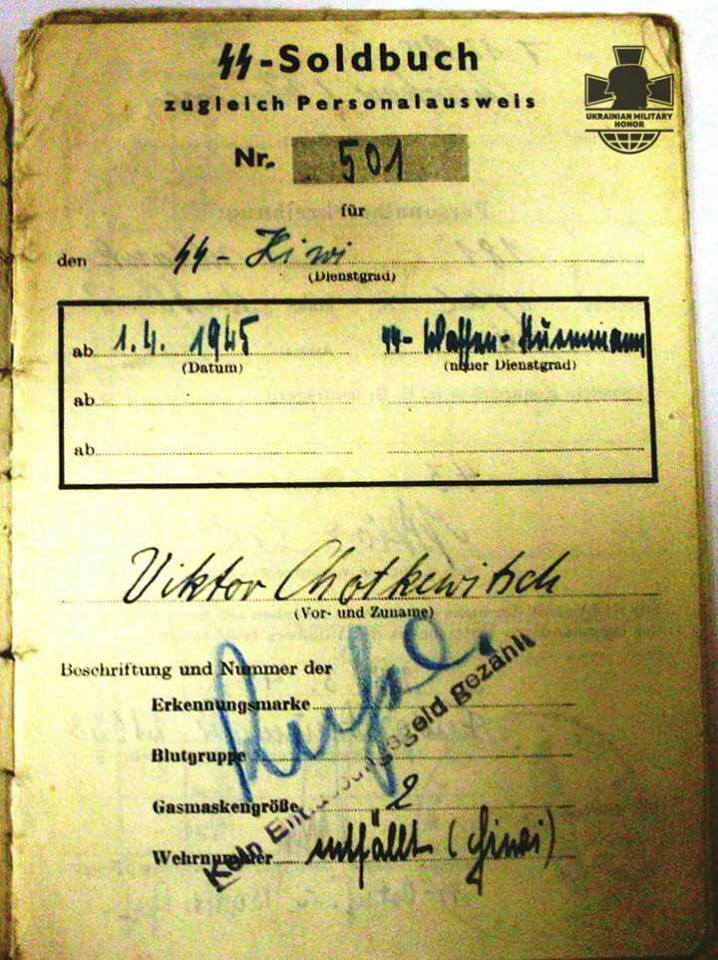 SS-Soldbuch
zugleich Personalausweis
UKRAINIAN MILITARY
HONOR
Nr. 501
für
den SS - Hiwi
(Dienstgrad)
ab 1.4. 1945 SS-Waffen-
(Datum) (neuer Dienstgrad)
ab
ab
Viktor Chotkewitsch
(Vor- und Zuname)
Beschriftung und Nummer der
Erkennungsmarke
Blutgruppe
Gasmaskengröße 2
Wehrnummer entfällt (Hiwi)
Kein Entlassungsgeld gezahlt